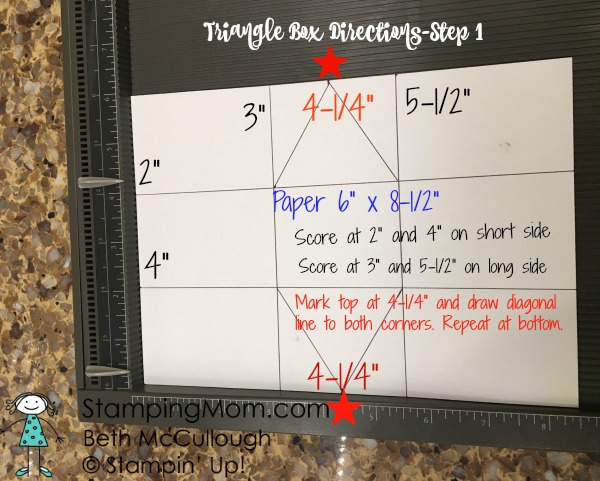 Triangle Box Directions-Step 1
3" 4-1/4" 5-1/2"
2"
Paper 6" x 8-1/2"
Score at 2" and 4" on short side
4" Score at 3" and 5-1/2" on long side
Mark top at 4-1/4" and draw diagonal
line to both corners. Repeat at bottom.
4-1/4"
StampingMom.com
Beth McCullough
© Stampin' Up!
5 6 7 8